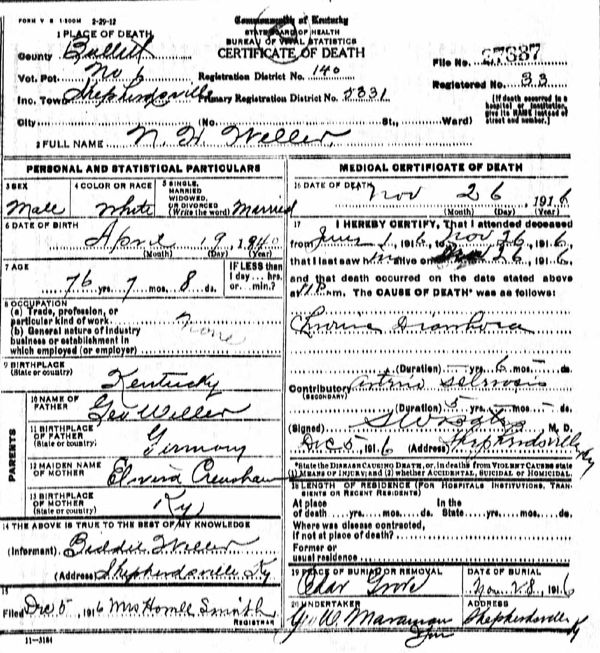 FORM V S 1-100M 2-29-12
Commonwealth of Kentucky
STATE BOARD OF HEALTH
BUREAU OF VITAL STATISTICS
CERTIFICATE OF DEATH
1 PLACE OF DEATH
County Bullitt
Vot. Pct. No 6
Inc. Town Shepherdsville
City (No. St., Ward)
Registration District No. 140
Primary Registration District No. 5331
File No. 27387
Registered No. 33
[If death occurred in a hospital or institution, give its NAME instead of street and number.]
2 FULL NAME N. H. Weller
PERSONAL AND STATISTICAL PARTICULARS
3 SEX Male
4 COLOR OR RACE White
5 SINGLE, MARRIED WIDOWED, OR DIVORCED (Write the word) Married
6 DATE OF BIRTH April 19, 1840
(Month) (Day) (Year)
7 AGE 76 yrs. 7 mos. 8 ds.
IF LESS than 1 day... hrs. or min.?
8 OCCUPATION
(a) Trade, profession, or particular kind of work None
(b) General nature of industry business or establishment in which employed (or employer)
9 BIRTHPLACE
(State or country) Kentucky
PARENTS
10 NAME OF FATHER Geo Weller
11 BIRTHPLACE OF FATHER
(State or country) Germany
12 MAIDEN NAME OF MOTHER Elvira Crenshaw
13 BIRTHPLACE OF MOTHER
(State or country) Ky
14 THE ABOVE IS TRUE TO THE BEST OF MY KNOWLEDGE
(Informant) Biddie Weller
(Address) Shepherdsville Ky
15
Filed Dec 5, 1916 Mrs Smith
REGISTRAR
11-3184
MEDICAL CERTIFICATE OF DEATH
16 DATE OF DEATH Nov 26, 1916
(Month) (Day) (Year)
17 I HEREBY CERTIFY, That I attended deceased
from June 1, 1916, to Nov 26, 1916,
that I last saw him alive on Nov 26, 1916,
and that death occurred on the date stated above
at 11 P. m. The CAUSE OF DEATH* was as follows:
(Duration) yrs. 6 mos. ds.
Contributory
(SECONDARY)
(Duration) 5 yrs. mos. ds.
(Signed) M. D.
Dec 5, 1916 (Address) Shepherdsville Ky
*State the DISEASE CAUSING DEATH, or, in deaths from VIOLENT CAUSES state (1) MEANS OF INJURY; and (2) whether ACCIDENTAL, SUICIDAL or HOMICIDAL.
18 LENGTH OF RESIDENCE (FOR HOSPITALS INSTITUTIONS, TRANSIENTS OR RECENT RESIDENTS)
At place of death yrs. mos. ds.
In the State yrs. mos. ds.
Where was disease contracted, if not at place of death?
Former or usual residence
19 PLACE OF BURIAL OR REMOVAL Cedar Grove
DATE OF BURIAL Nov. 28, 1916
20 UNDERTAKER Geo W. Maraman
ADDRESS Shepherdsville Ky